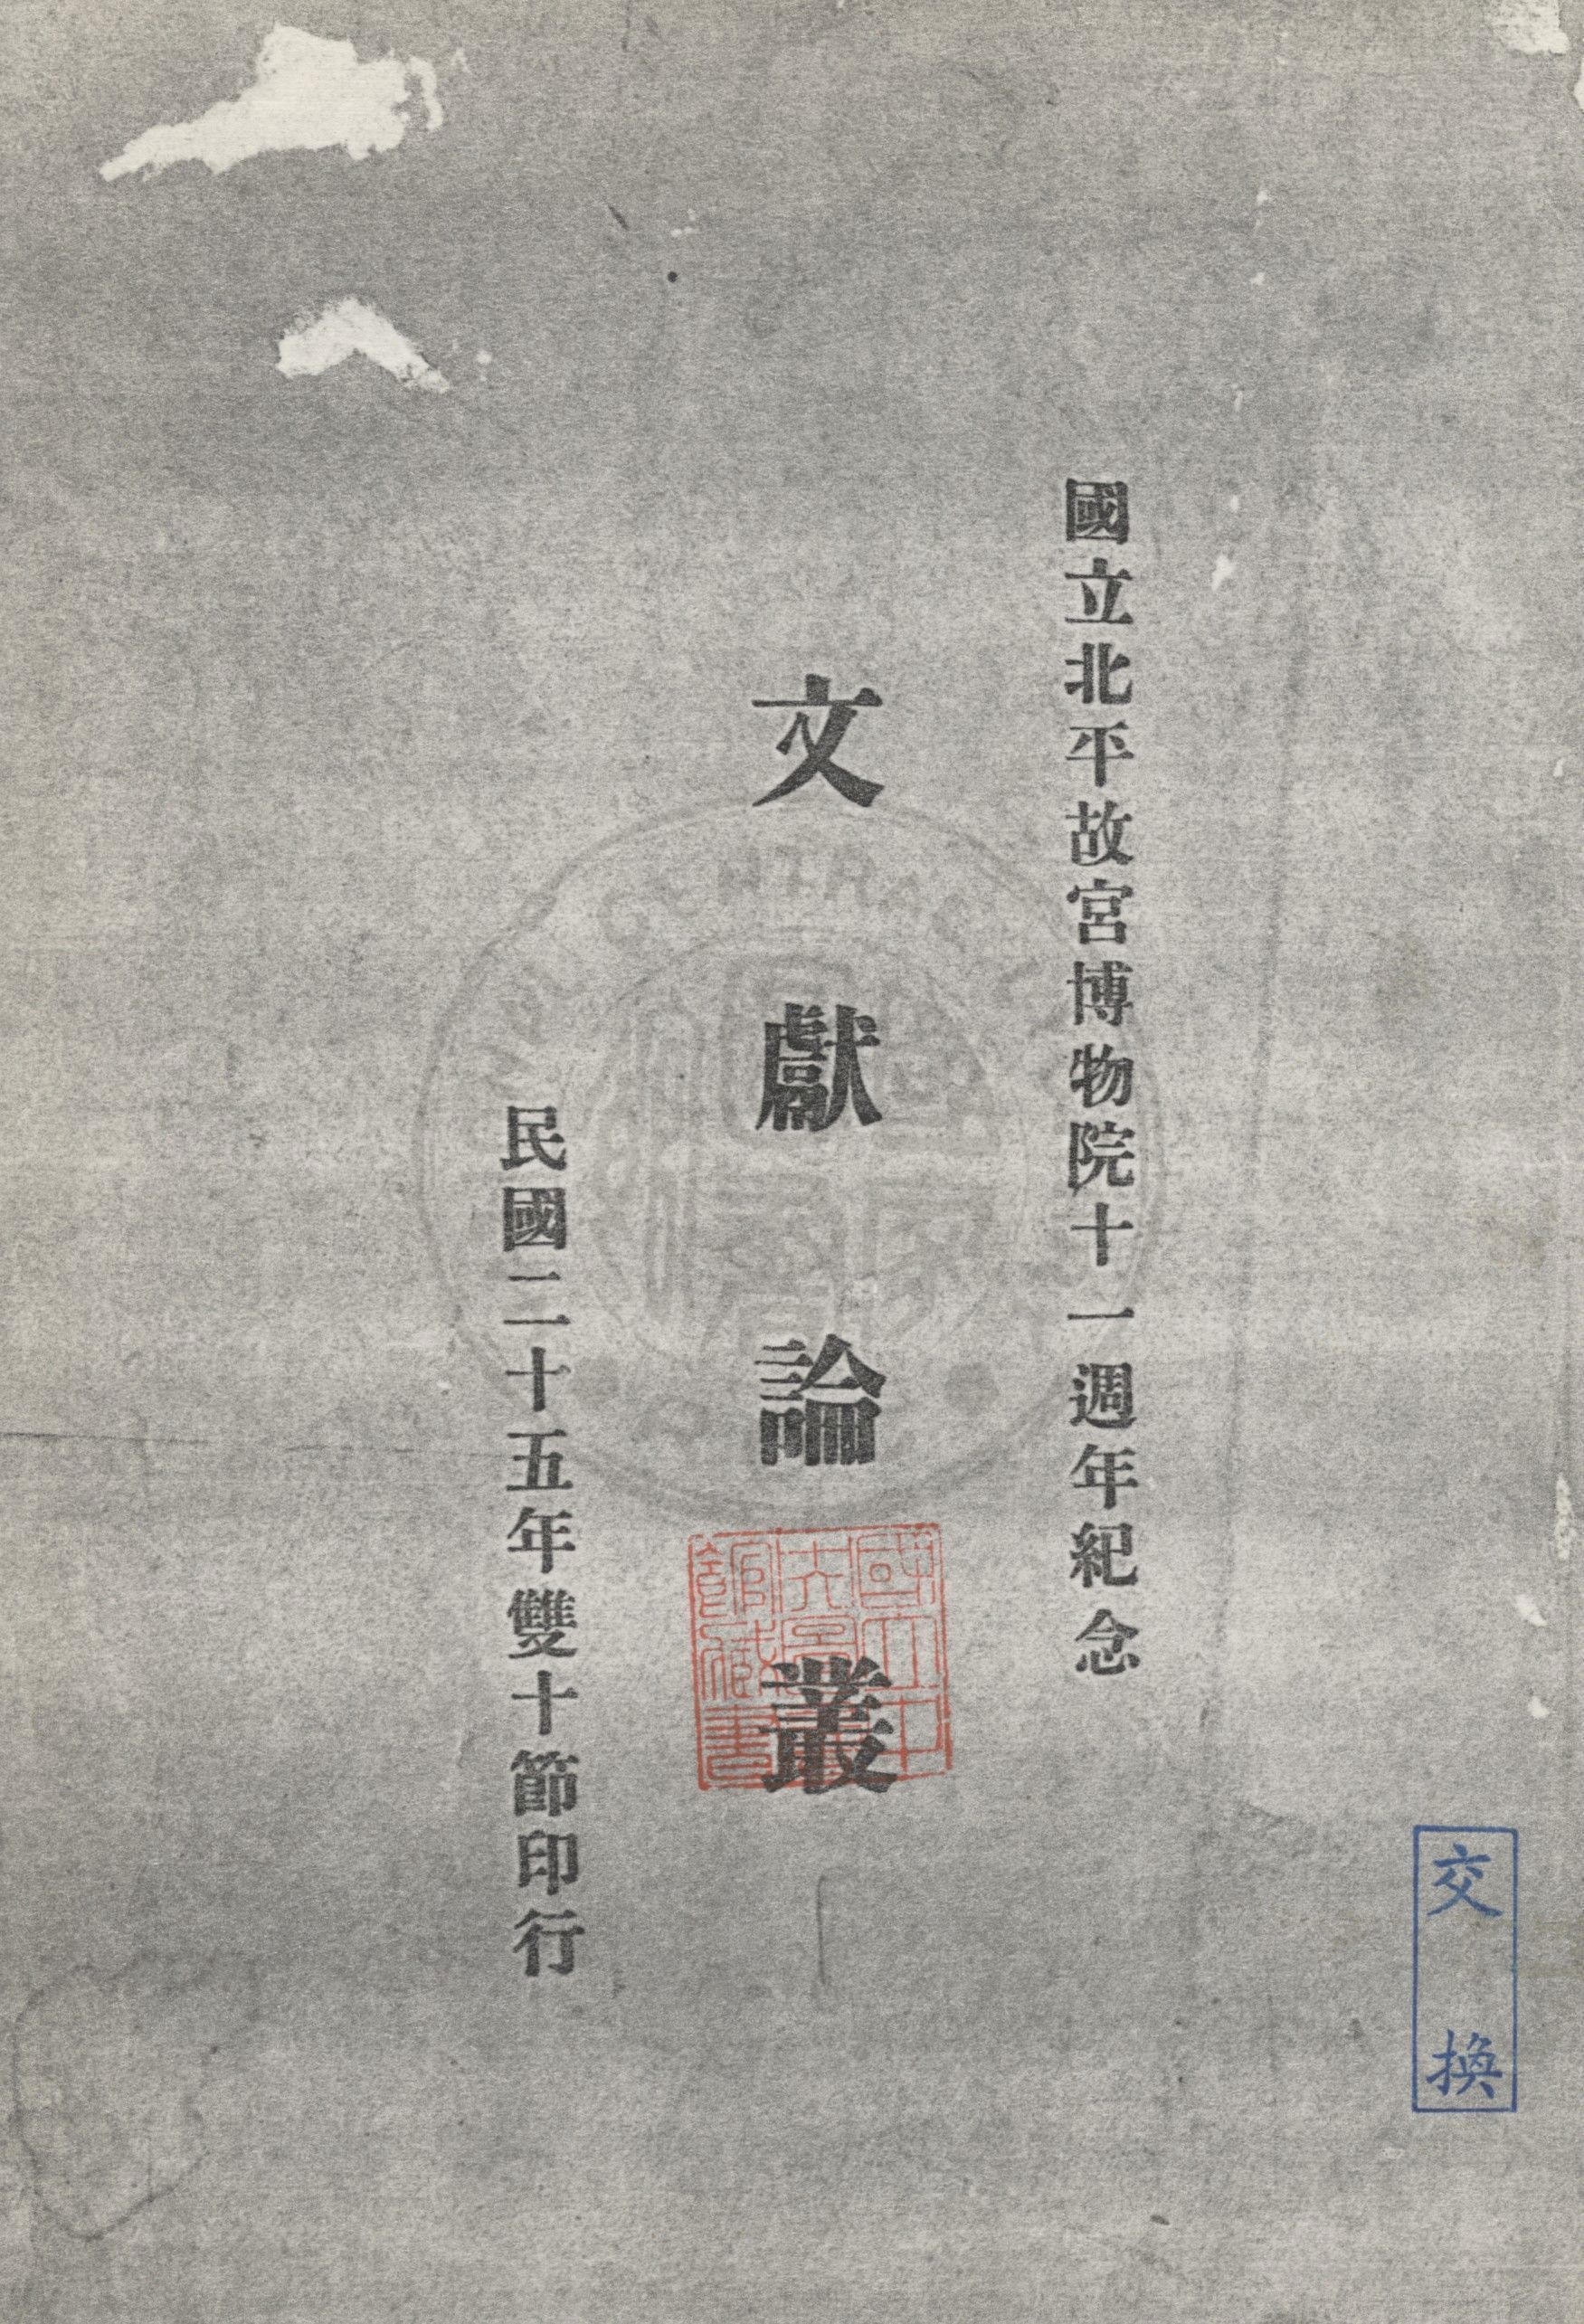 國立北平故宮博物院十一週年紀念
文獻論叢
民國二十五年雙十節印行
國立中央圖書館藏書
交換